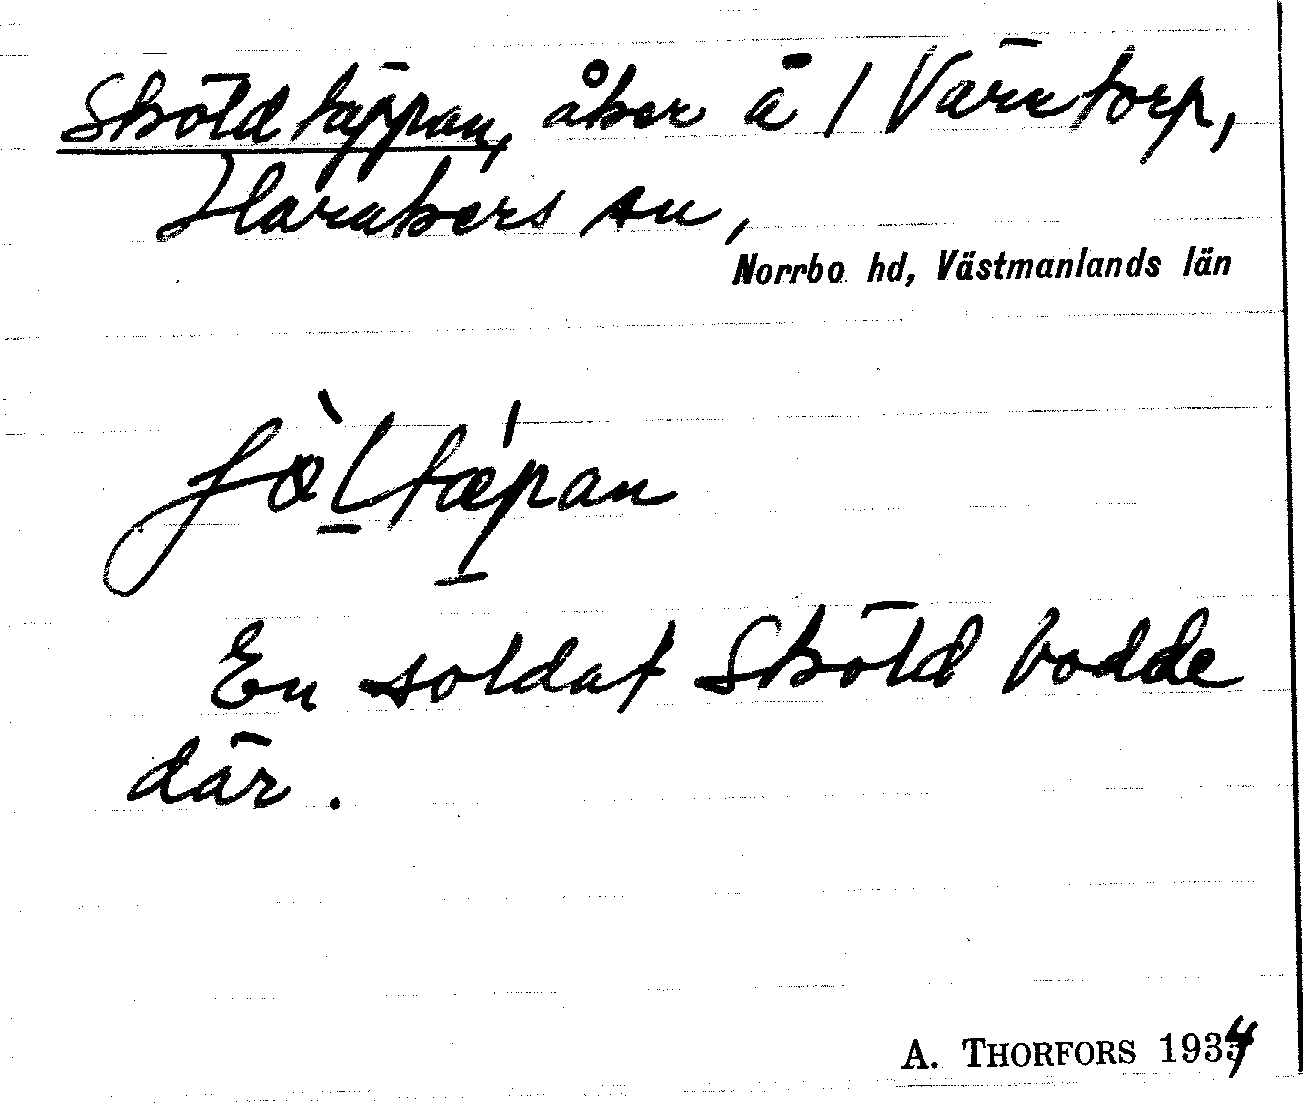 Sköldtäppan, åker ä 1 Värntorp,
Harakers sn,
Norrbo hd, Västmanlands län
fö̀ltǽpan
En soldat Sköld bodde
där.
A. THORFORS 1934